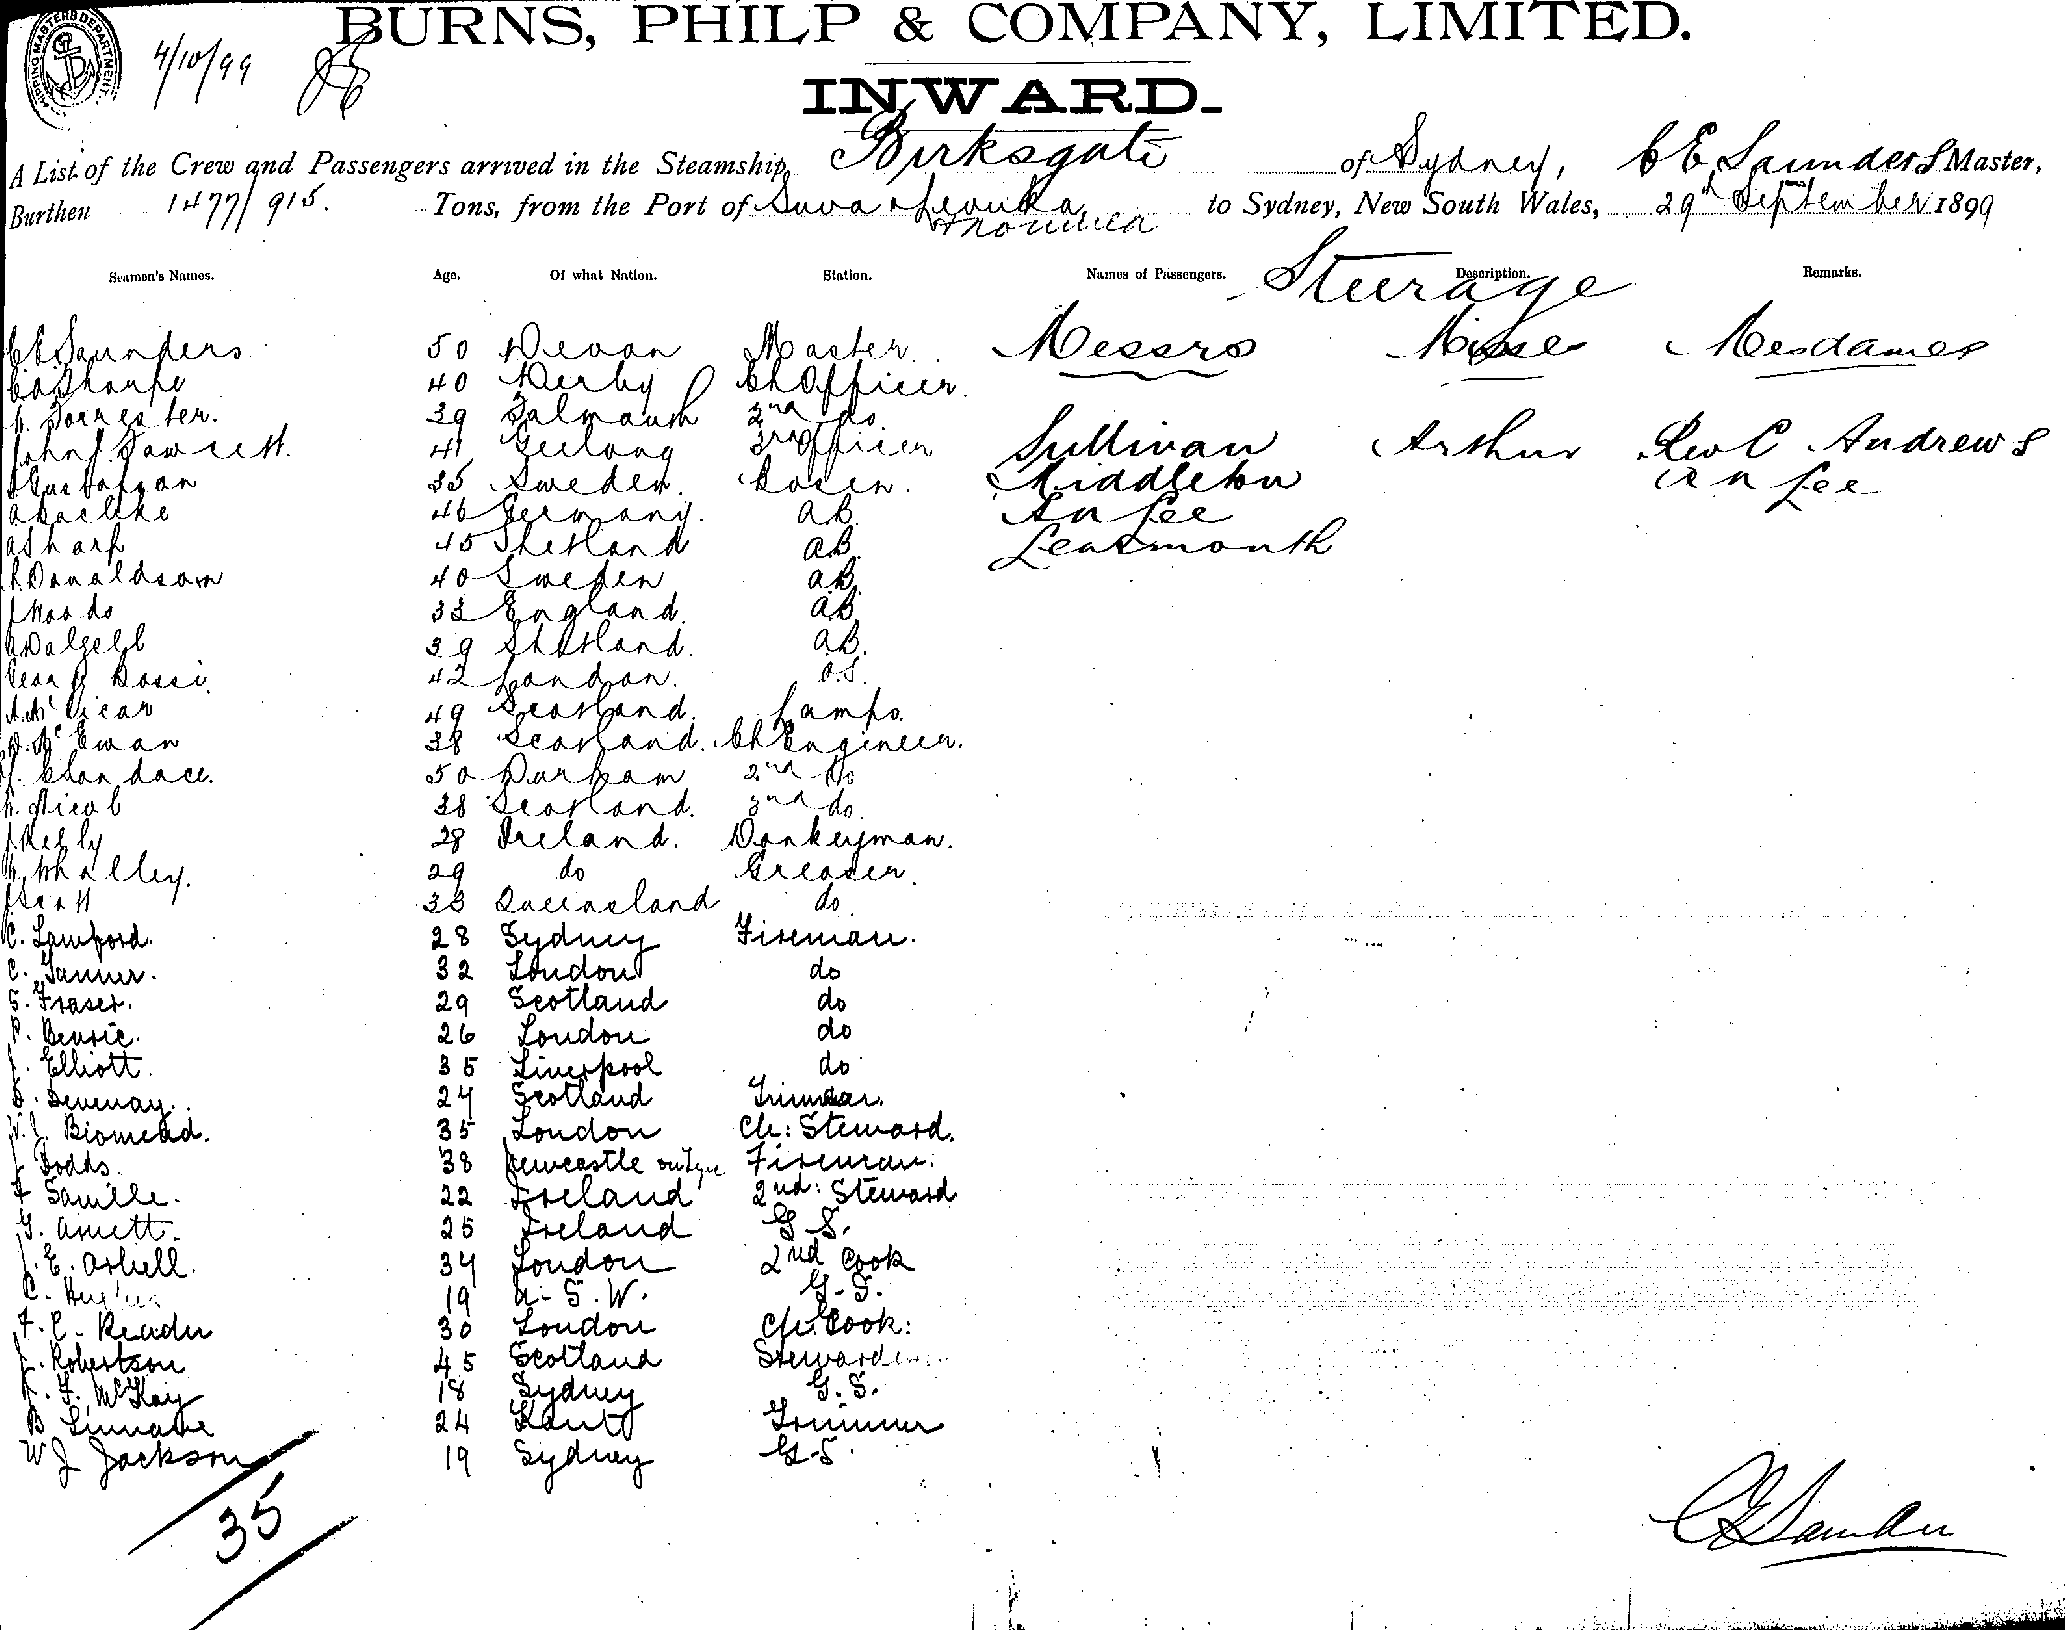 SHIPPING MASTERS DEPARTMENT
4/10/99
BURNS, PHILP & COMPANY, LIMITED.
INWARD.
A List of the Crew and Passengers arrived in the Steamship, Birksgate of Sydney, C E Saunders Master,
Burthen 1477/915. Tons, from the Port of Suva & Levuka to Sydney, New South Wales, 29th September 1899
Noumea
Seamen's Names. Age. Of what Nation. Station. Names of Passengers. Description. Remarks.
Steerage
C E Saunders 50 Devon Master. Messrs Misse Mesdames
40 Derby Ch Officer.
Forrester. 39 Falmouth 2nd do
John Fawcett. 41 Geelong 3rd Officer Sullivan Arthur Rev C Andrews
Gustafson 35 Sweden. Bosen. Middleton Lee
46 Germany. AB. Lee
A Sharp 45 Shetland AB. Learmonth
Donaldson 40 Sweden AB.
J Woods 33 England. AB.
Dalzell 39 Shetland. AB.
42 London. O.S.
McVicar 49 Scotland. Lamps.
McEwan 38 Scotland. Ch Engineer.
50 Durham 2nd do
Nicol 38 Scotland. 3rd do.
J Kelly 28 Ireland. Donkeyman.
Whalley. 29 do Greaser.
J Scott 33 Queensland do
C. Lamford. 28 Sydney Fireman.
C. Tanner. 32 London do
S. Fraser. 29 Scotland do
26 London do
J. Elliott. 35 Liverpool do
24 Scotland Trimmer.
W. J. Biomead. 35 London Ch: Steward.
J Dodds. 38 Newcastle on Tyne Fireman.
F Saville. 22 Ireland 2nd: Steward
G. Arnett. 25 Ireland G S.
J. E. 34 London 2nd Cook
C. Hughes 19 N. S. W. G. S.
F. C. Reader 30 London Ch. Cook:
J. Robertson 45 Scotland Stewardess
F. McKay 18 Sydney G. S.
B 24 Kent Trimmer
W J Jackson 19 Sydney G-S
35
C E Saunders